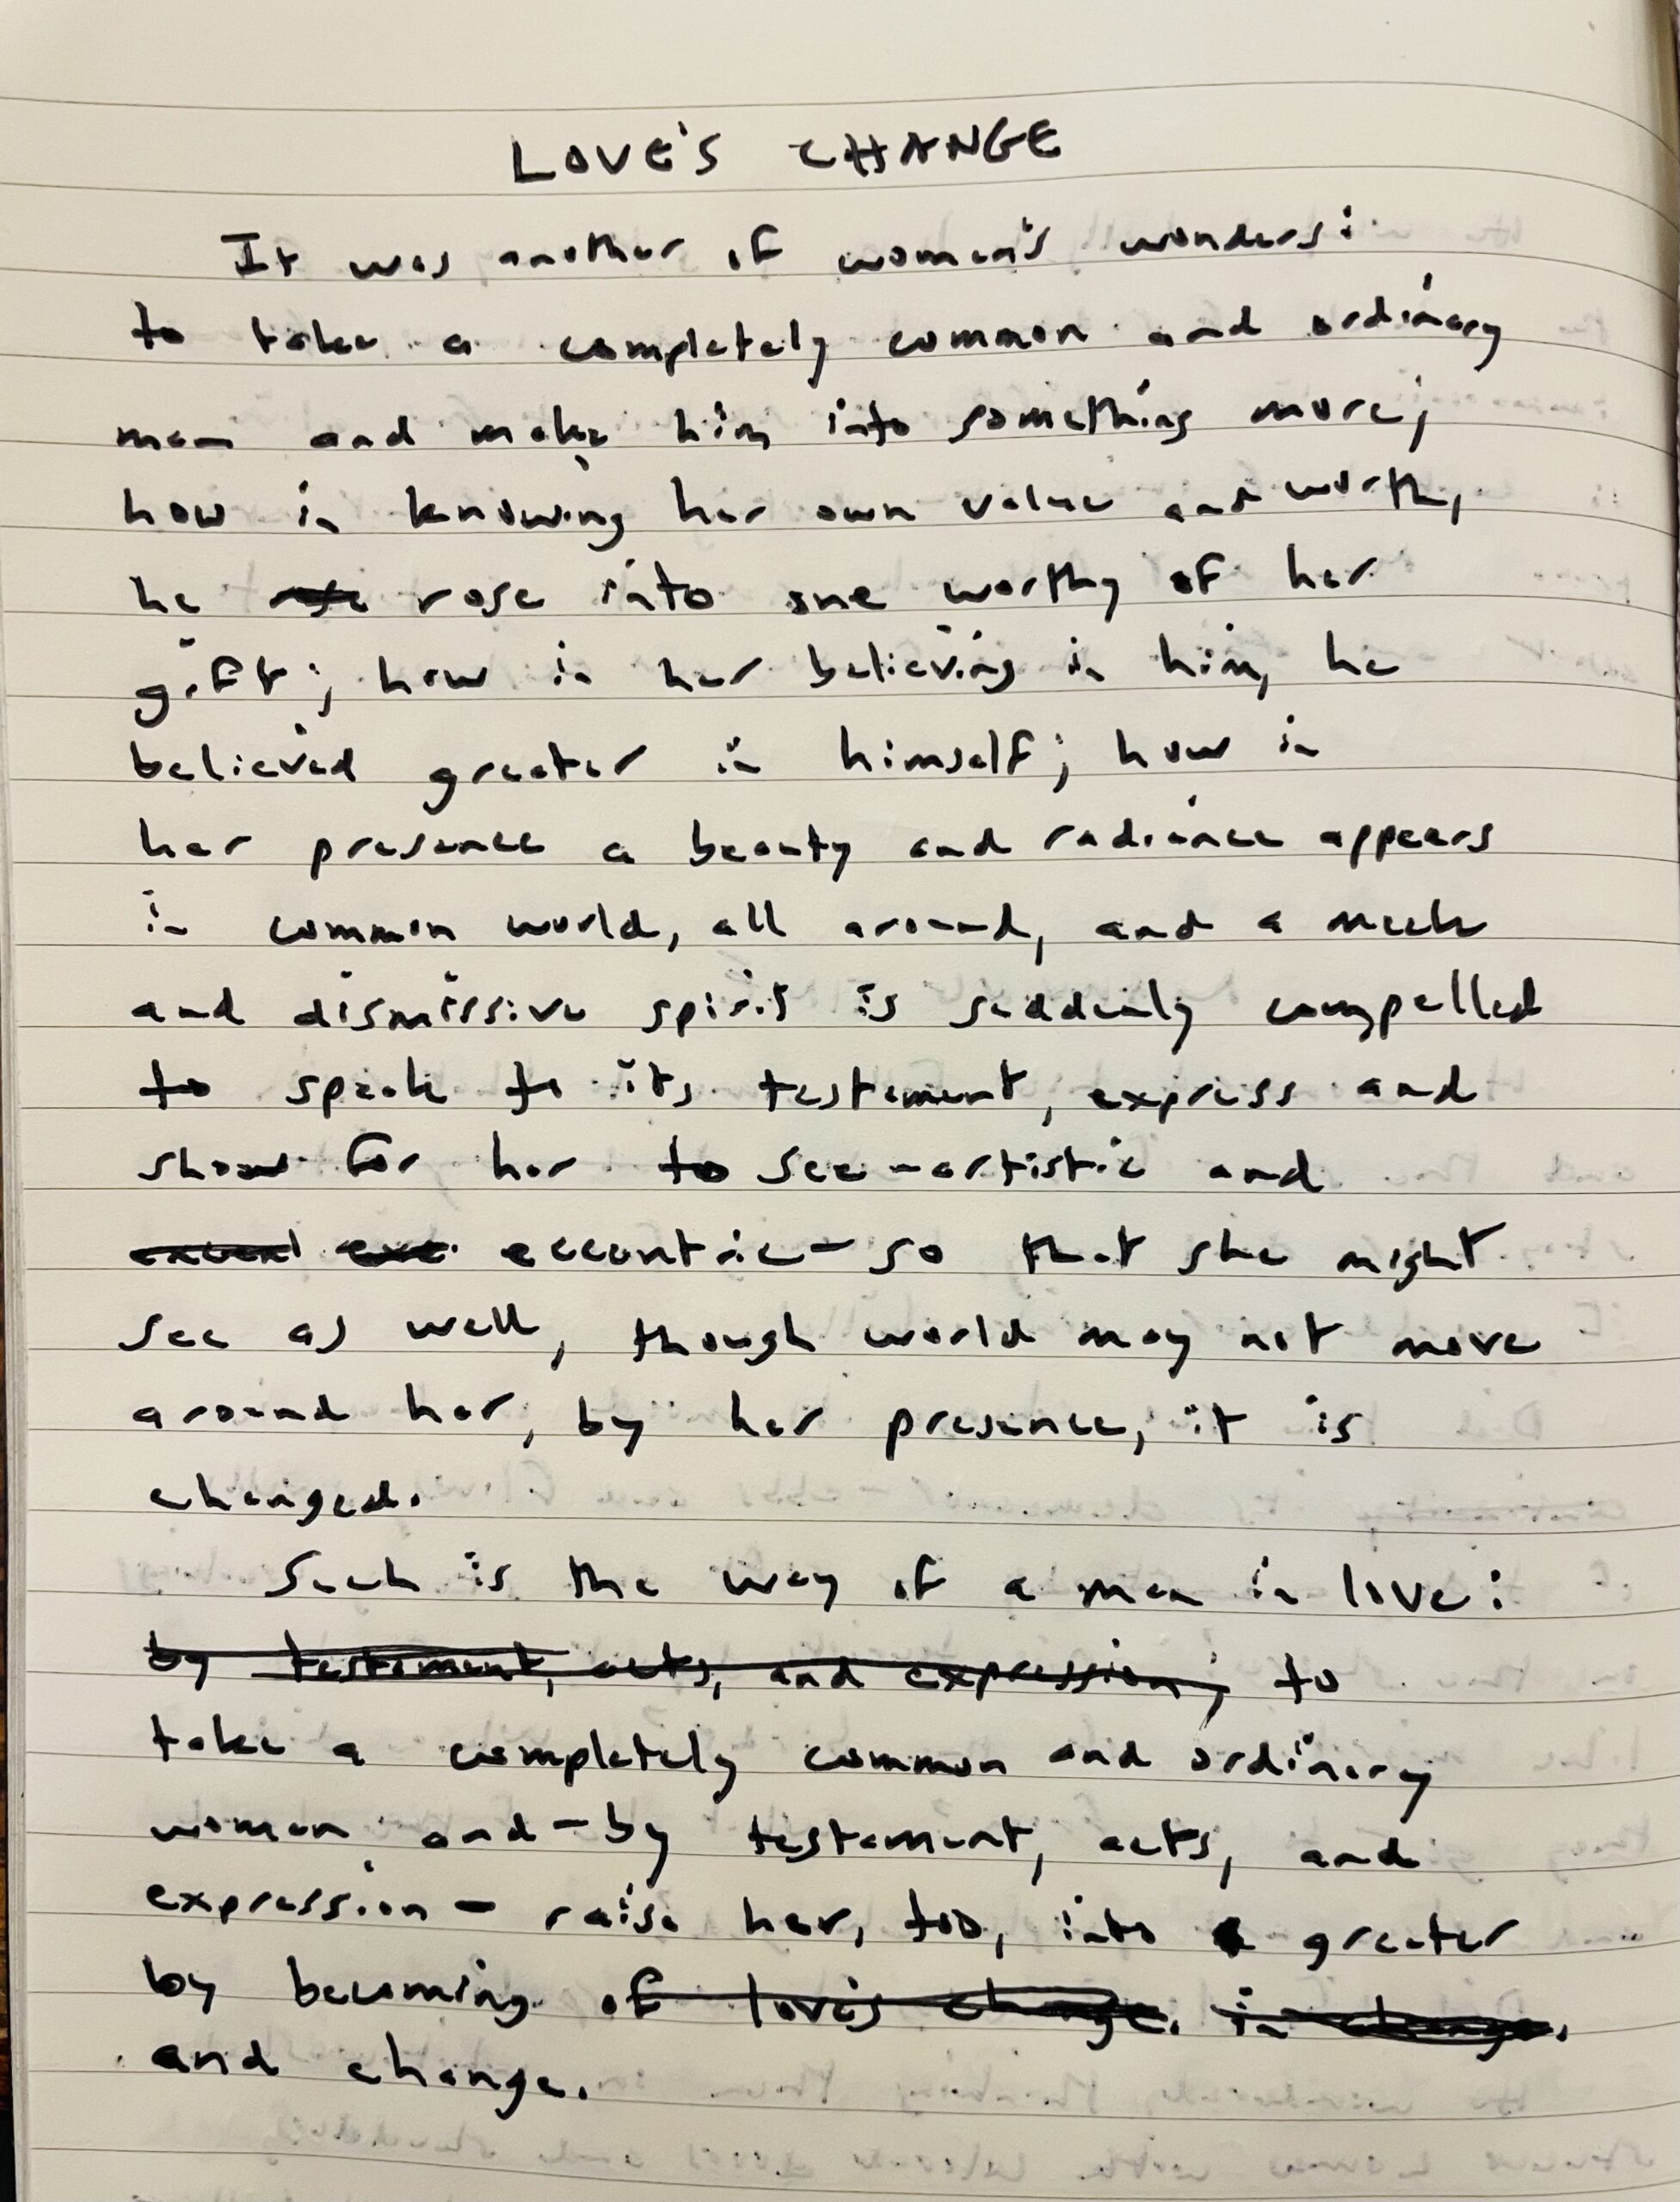 LOVE'S CHANGE
It was another of women's wonders:
to take a completely common and ordinary
man and make him into something more;
how in knowing her own value and worth,
he rose into one worthy of her
gift; how in her believing in him, he
believed greater in himself; how in
her presence a beauty and radiance appears
in common world, all around, and a meek
and dismissive spirit is suddenly compelled
to speak to its testament, express and
show for her to see - artistic and
eccentric - so that she might
see as well, though world may not move
around her, by her presence, it is
changed.
Such is the way of a man in love:
by testament, acts, and expression, to
take a completely common and ordinary
woman and - by testament, acts, and
expression - raise her, too, into greater
by becoming of love's change. in change.
and change.